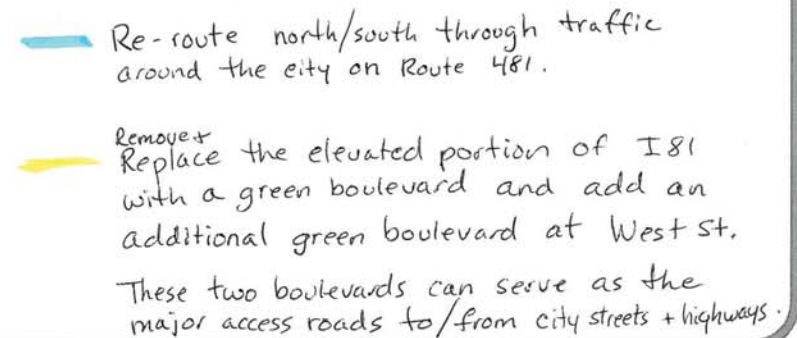 Re-route north/south through traffic
around the city on Route 481.
Remove +
Replace the elevated portion of I81
with a green boulevard and add an
additional green boulevard at West St.
These two boulevards can serve as the
major access roads to/from city streets + highways.